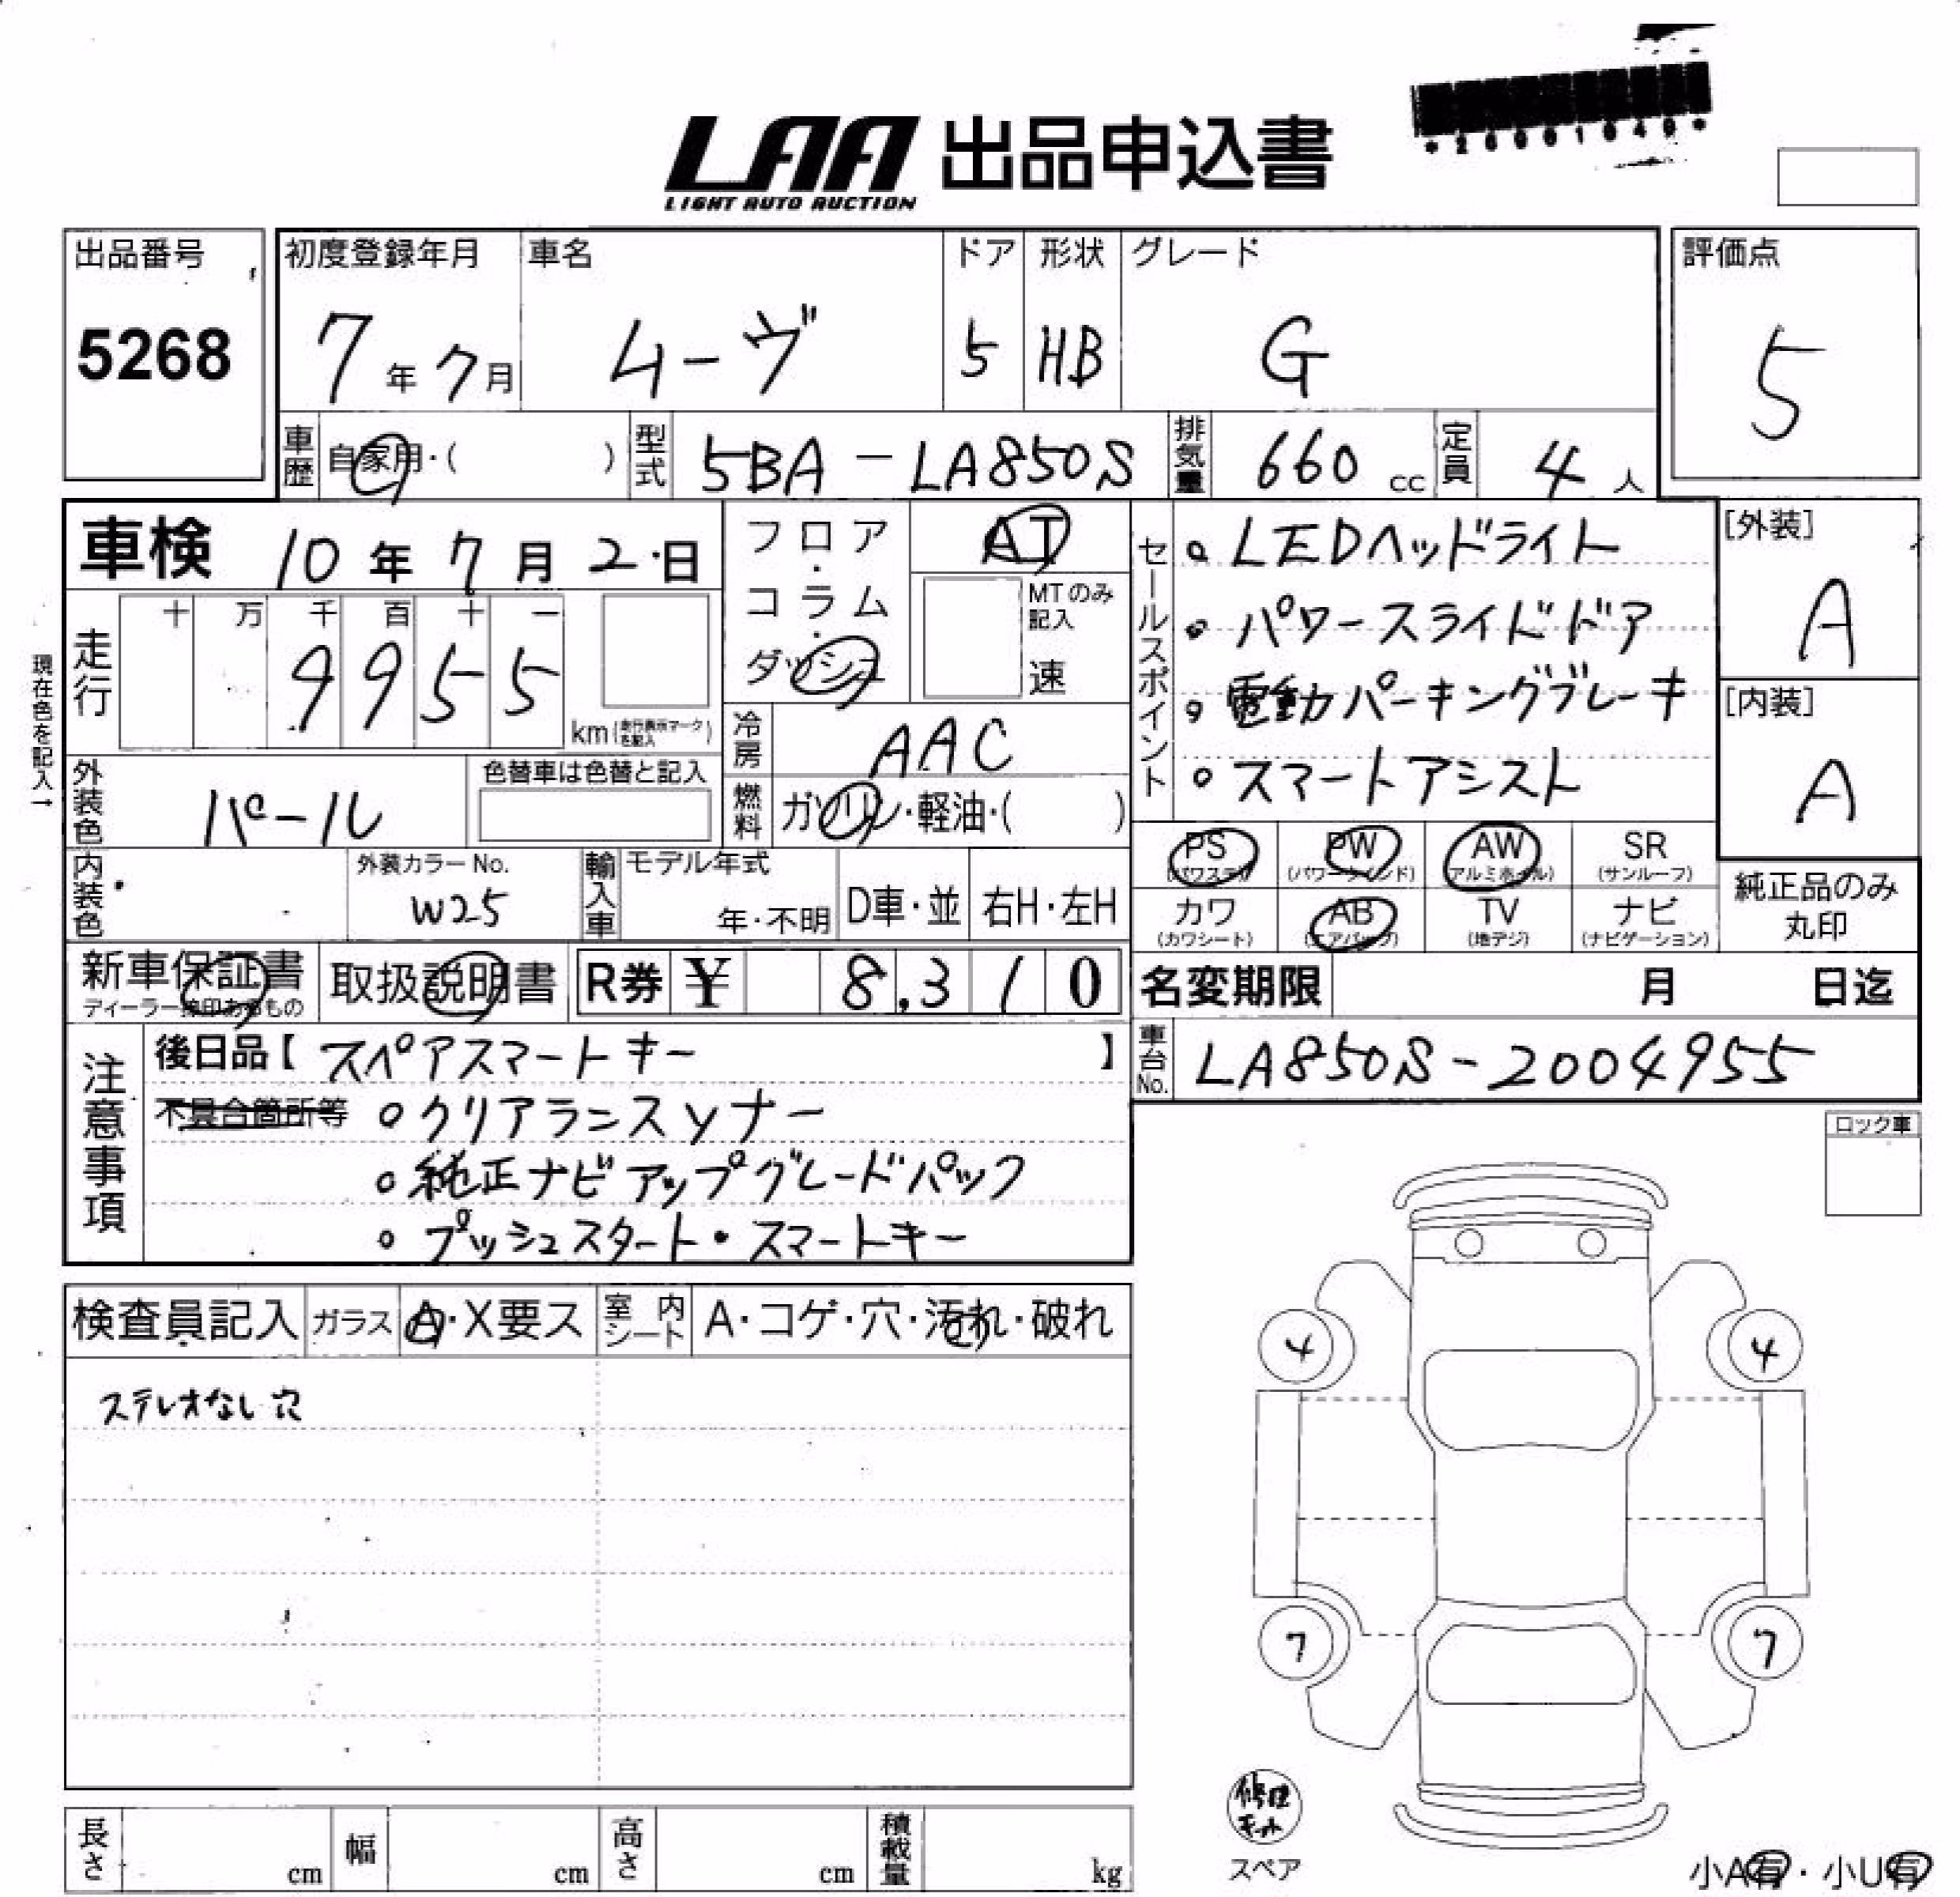 LAA 出品申込書
LIGHT AUTO AUCTION
出品番号
5268
初度登録年月
7年7月
車名
ムーヴ
ドア
5
形状
HB
グレード
G
評価点
5
車歴
自家用・( )
型式
5BA-LA850S
排気量
660 cc
定員
4 人
車検 10年7月2日
フロア・コラム・ダッシュ
AT
MTのみ記入
速
現在色を記入→
走行
十 万 千 百 十 一
9 9 5 5
km
冷房
AAC
燃料
ガソリン・軽油・( )
外装色
パール
色替車は色替と記入
内装色
外装カラーNo.
W25
輸入車
モデル年式
年・不明
D車・並
右H・左H
セールスポイント
○ LEDヘッドライト
○ パワースライドドア
○ 電動パーキングブレーキ
○ スマートアシスト
[外装]
A
[内装]
A
PS (パワステ)
PW (パワーウインド)
AW (アルミホイル)
SR (サンルーフ)
カワ (カワシート)
AB (エアバッグ)
TV (地デジ)
ナビ (ナビゲーション)
純正品のみ
丸印
新車保証書
ディーラー捺印あるもの
取扱説明書
R券 ¥ 8,310
名変期限 月 日迄
車台No.
LA850S-2004955
注意事項
後日品【 スペアスマートキー 】
不具合箇所等 ○クリアランスソナー
○ 純正ナビアップグレードパック
○ プッシュスタート・スマートキー
ロック車
検査員記入
ガラス
A・X要ス
室内シート
A・コゲ・穴・汚れ・破れ
ステレオなし穴
4 4
7 7
修理キット
スペア
小A有・小U有
長さ cm
幅 cm
高さ cm
積載量 kg